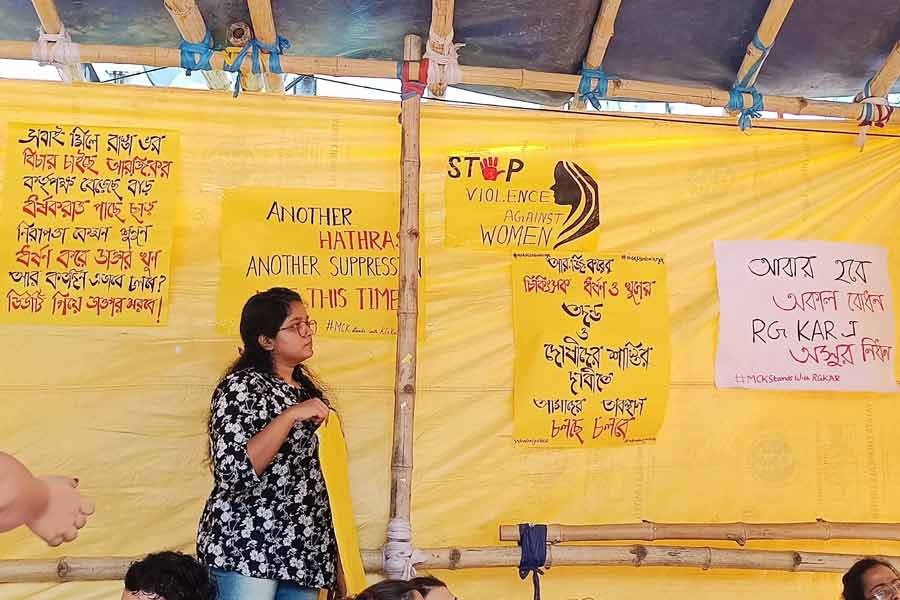 সবাই মিলে রাস্তা ওর
বিচার চাইছে আরজিকর
কর্তৃপক্ষ বেড়েছে বাড়
ধর্ষকরাত পাচ্ছে ছাড়
নিরাপত্তা কেমন
ধর্ষণ করে ডাক্তার খুন
আর কতদিন এভাবে চলবে?
ডিউটি গিয়ে ডাক্তার মরবে!
ANOTHER
HATHRAS
ANOTHER SUPPRESSION
THIS TIME
#MCK stands with RGKAR
STOP
VIOLENCE
AGAINST
WOMEN
আরজিকরের
চিকিৎসক ধর্ষণ ও খুনের
তদন্ত
ও
দোষীদের শাস্তির
দাবীতে
আমাদের অবস্থান
চলছে চলবে
আবার হবে
অকাল বোধন
RG KAR এ
অসুর নিধন
#MCKStands With RGKAR